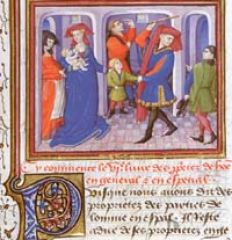 Cy commence le vj liure des de
en general & en especial
Puisque nous auons dit des
proprietez des parties de
lomme en espal. Il reste
a dire de ses proprietez en ge